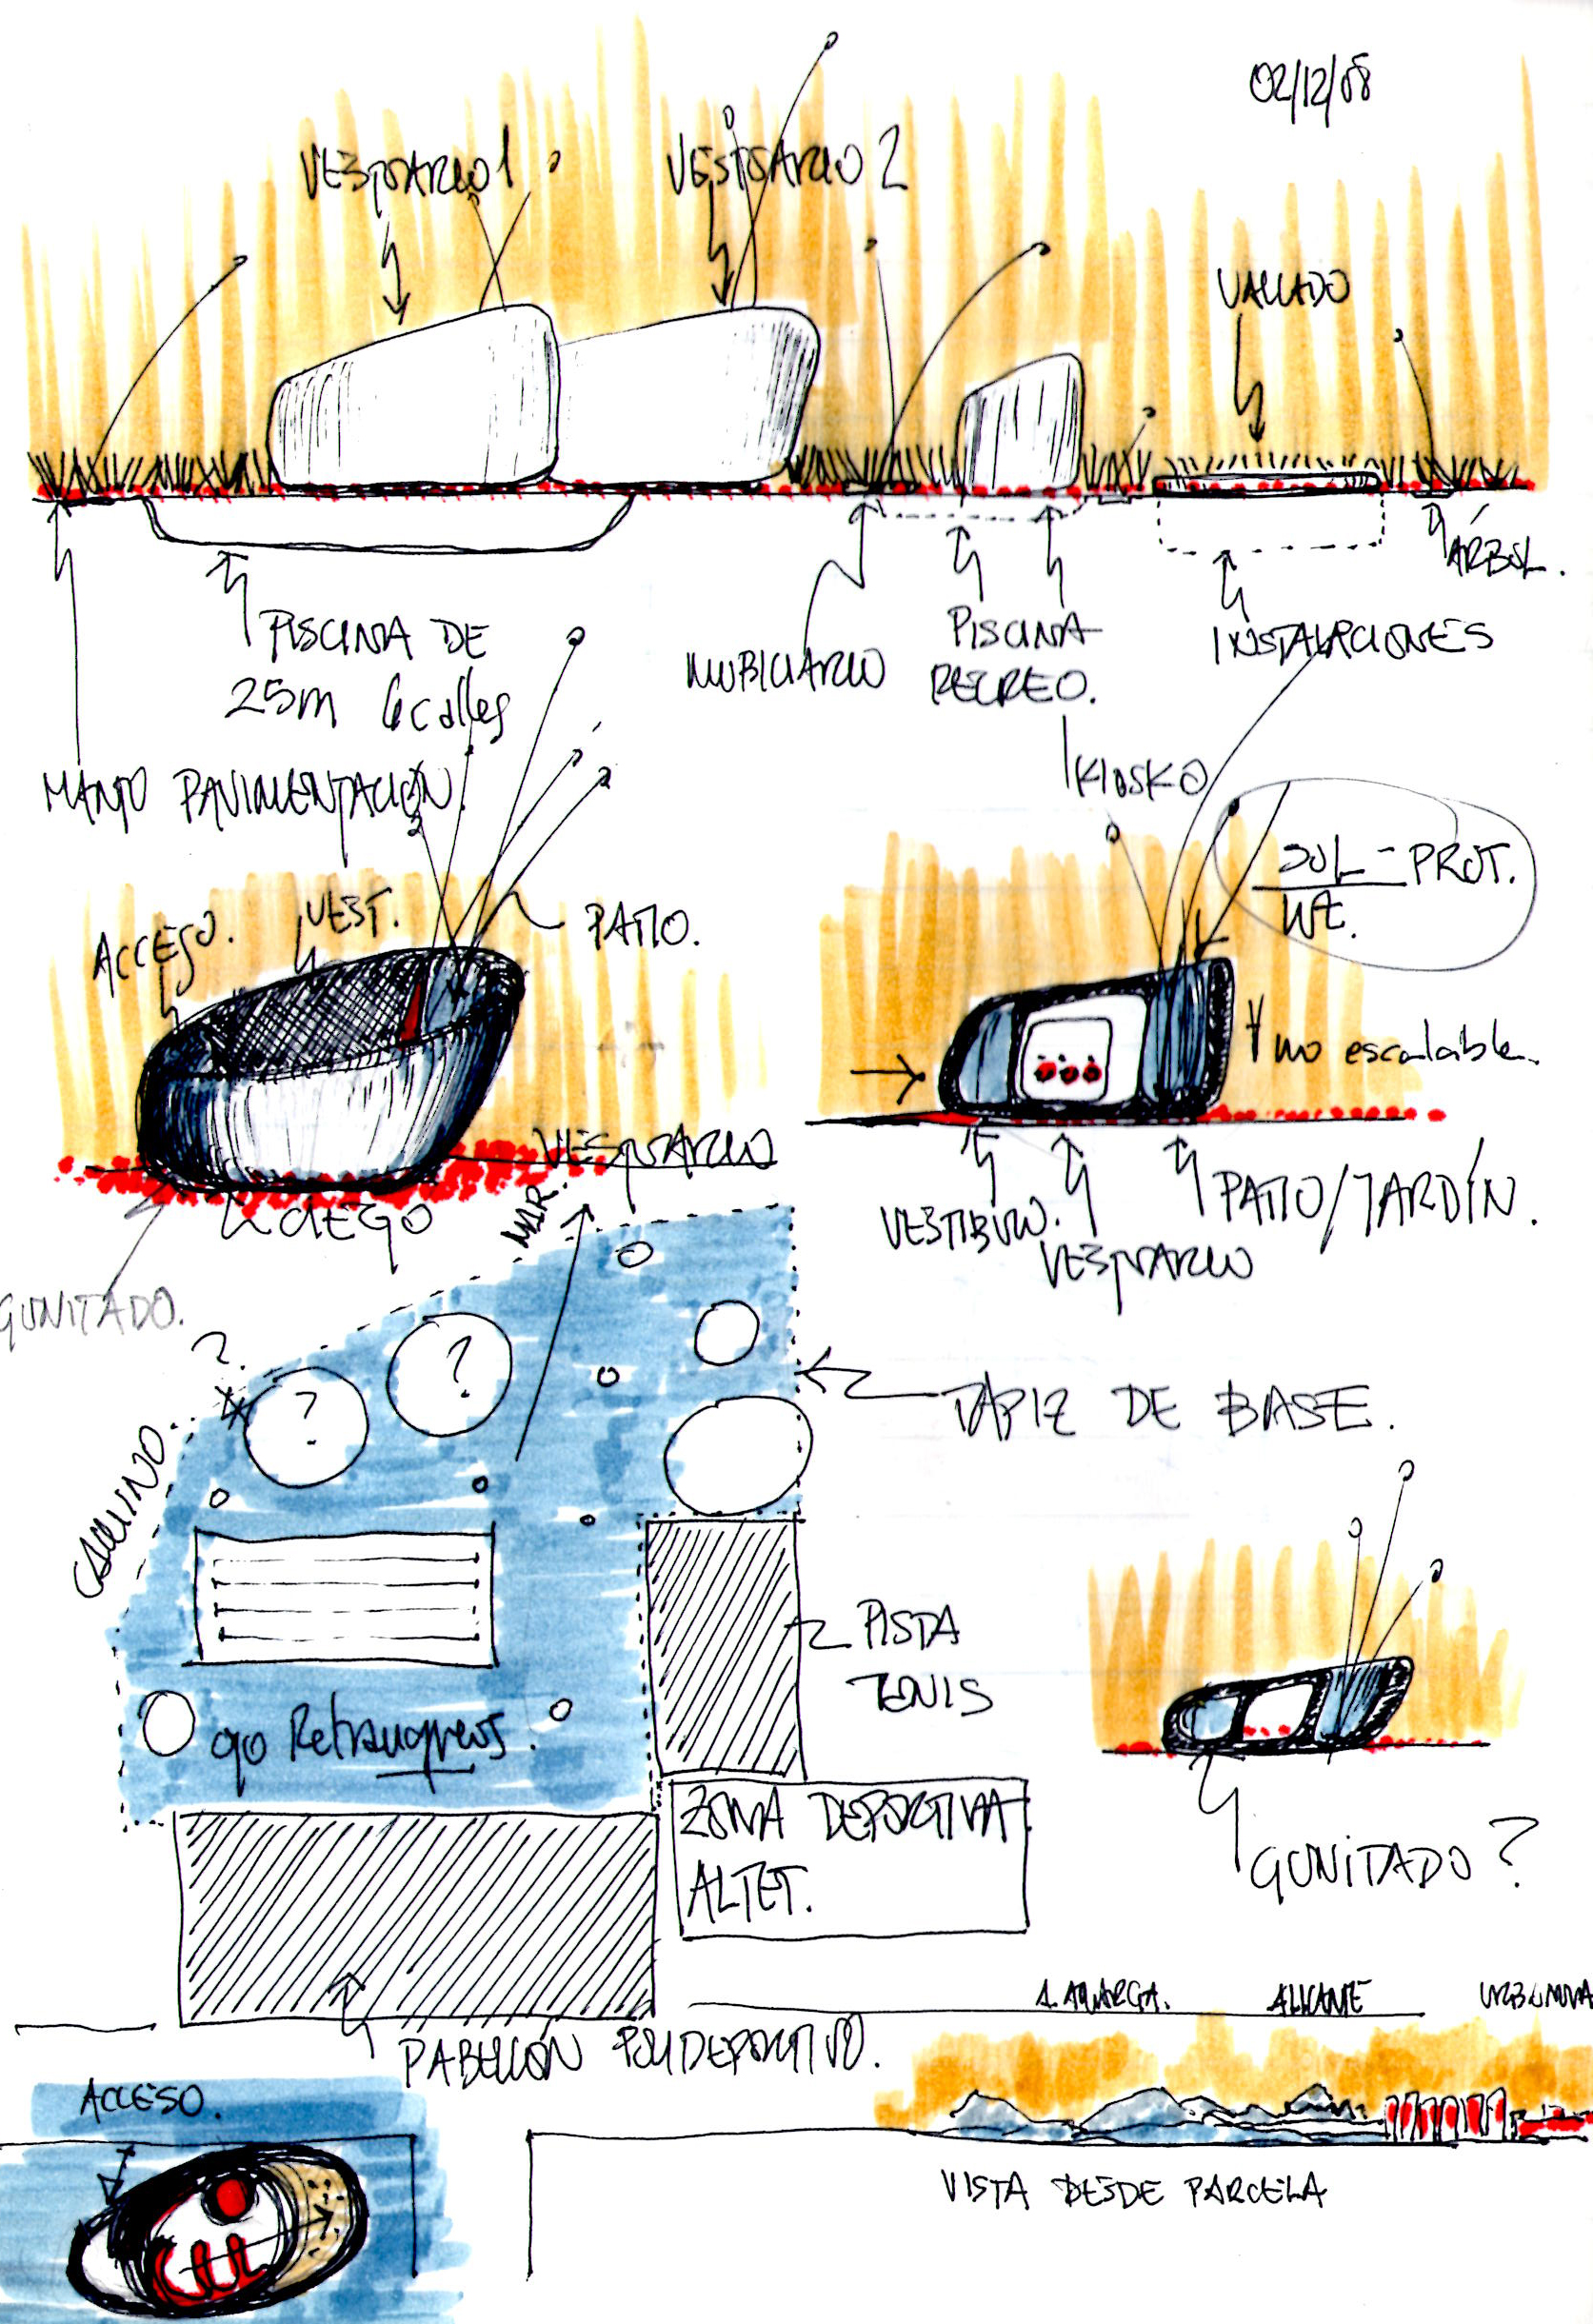 02/12/08
VESTUARIO 1
VESTUARIO 2
VALLADO
ÁRBOL.
PISCINA DE
25m 6 calles
MOBILIARIO
PISCINA
RECREO.
INSTALACIONES
MANTO PAVIMENTACIÓN.
KIOSKO
SOL - PROT.
ACCESO.
VEST.
PATIO.
no escalable.
VESTUARIO
CIEGO
VESTIBULO.
VESTUARIO
PATIO/JARDÍN.
GUNITADO.
MAR.
?
?
?
CAMINO.
TAPIZ DE BASE.
PISTA
TENIS
ojo Retranqueos.
ZONA DEPORTIVA
ALTET.
GUNITADO?
PABELLÓN POLIDEPORTIVO.
ALICANTE
URBANOVA
ACCESO.
VISTA DESDE PARCELA